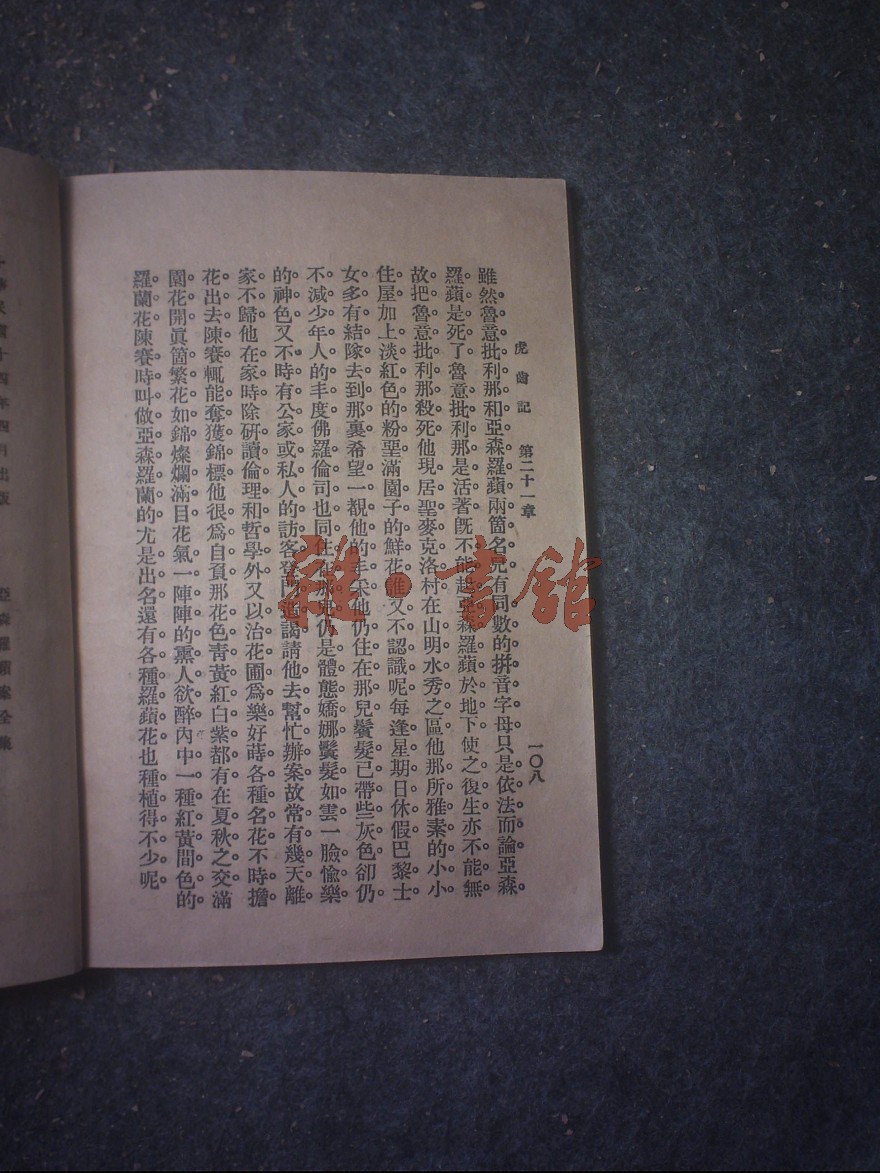 虎齒記　第二十一章　一〇八
雖然魯意批利那和亞森羅蘋兩箇名兒有同數的拼音字母只是依法而論亞森
羅蘋是死了魯意批利那是活著旣不能起亞森羅蘋於地下使之復生亦不能無
故把魯意批利那殺死他現居聖麥克洛村在山明水秀之區他那所雅素的小小
住屋加上淡紅色的粉堊滿園子的鮮花誰又不認識呢每逢星期日休假巴黎士
女多有結隊去到那裏希望一覩他的丰采他仍住在那兒鬢髮已帶些灰色卻仍
不減少年人的丰度佛羅倫司也同住在那兒仍是體態嬌娜鬢髮如雲一臉愉樂
的神色又不時有公家或私人的訪客登門造謁請他去幫忙辦案故常有幾天離
家不歸他在家時除研讀倫理和哲學外又以治花圃爲樂好蒔各種名花不時擔
花出去陳賽輒能奪獲錦標他很爲自負那花色靑黃紅白紫都有在夏秋之交滿
園花開眞箇繁花如錦燦爛滿目花氣一陣陣的熏人欲醉內中一種紅黃間色的
羅蘭花陳賽時叫做亞森羅蘭的尤是出名還有各種羅蘋花也種植得不少呢
雜·書館
十四年四月出版
亞森羅蘋案全集